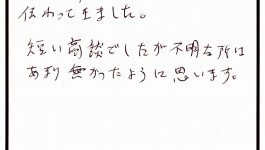 伝わって来ました。
短い商談でしたが不明な所は
あまり無かったように思います。